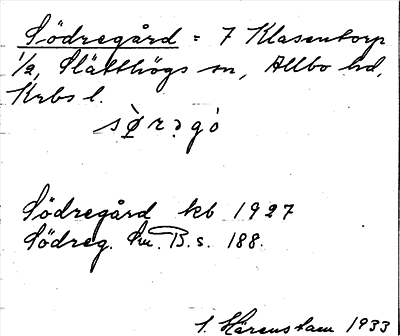 Södregård = 7 Klasentorp
1/2, Slätthögs sn, Allbo hd,
Krbs l.
sø̀rəgó
Södregård kb 1927
Södreg. Sm. B. s. 188.
I. Härenstam 1933